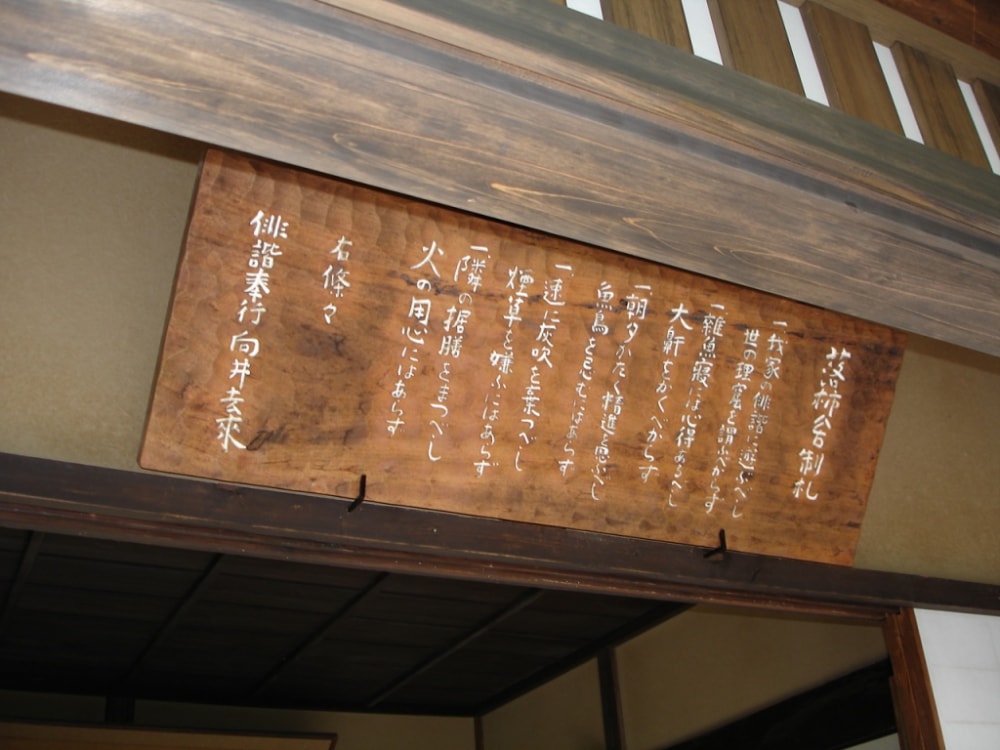 落柿舎制札
一我家の俳諧に遊ぶべし
世の理窟を謂ふべからず
一雑魚寝には心得あるべし
大鼾をかくべからず
一朝夕かたく精進を思ふべし
魚鳥を忌むにはあらず
一速に灰吹を棄つべし
煙草を嫌ふにはあらず
一隣の据膳をまつべし
火の用心にはあらず
右條々
俳諧奉行向井去來